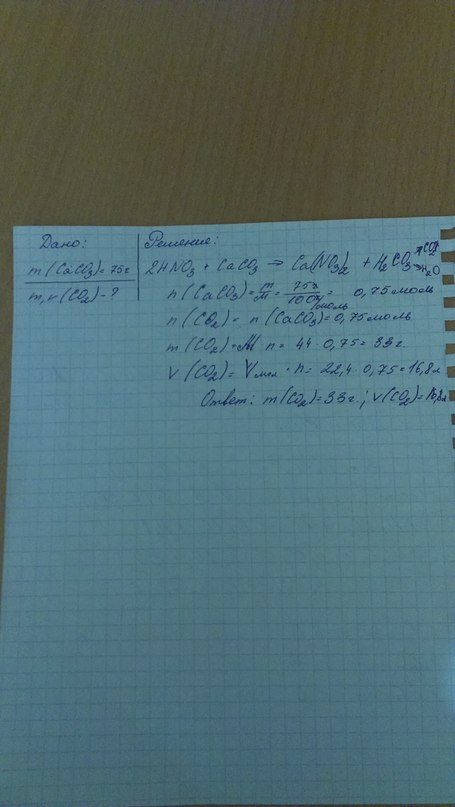 Дано:
m(CaCO₃)=75г
m, v(CO₂)-?
Решение:
2HNO₃ + CaCO₃ → Ca(NO₃)₂ + H₂CO₃ ↗CO₂↑ ↘H₂O
n(CaCO₃)= m/M = 75г/100г/моль = 0,75 моль
n(CO₂)= n(CaCO₃)=0,75моль
m(CO₂)=M·n= 44·0,75=33г
v(CO₂)= Vмол·n= 22,4·0,75=16,8л
Ответ: m(CO₂)=33г; v(CO₂)=16,8л